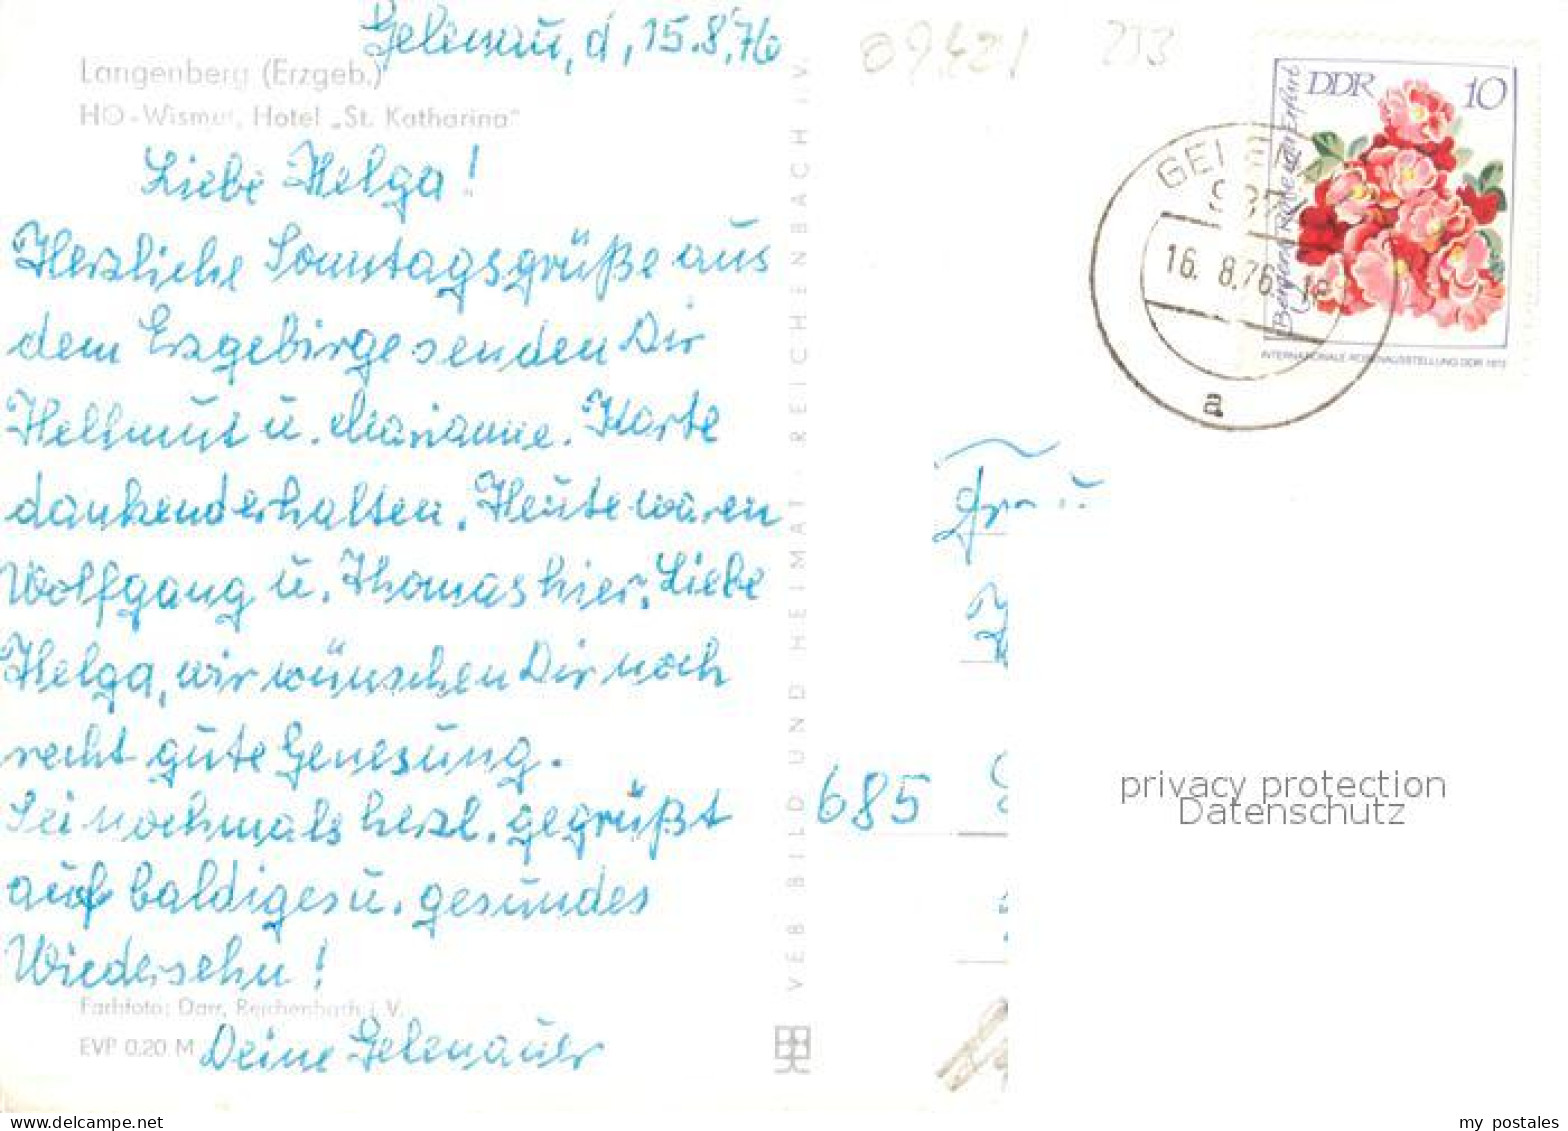 Gelenau, d, 15.8.76
Langenberg (Erzgeb.)
HO-Wismut, Hotel „St. Katharina“
Liebe Helga!
Herzliche Sonntagsgrüße aus
dem Erzgebirge senden Dir
Hellmut u. Marianne. Karte
dankend erhalten. Heute waren
Wolfgang u. Thomas hier. Liebe
Helga, wir wünschen Dir noch
recht gute Genesung.
Sei nochmals herzl. gegrüßt
auf baldiges u. gesundes
Wiedersehn!
Farbfoto: Darr, Reichenbach i. V.
EVP 0,20 M
Deine Gelenauer
VEB BILD UND HEIMAT · REICHENBACH I. V.
09.421
233
DDR 10
INTERNATIONALE ROSENAUSSTELLUNG DDR 1972
16. 8.76
a
Frau
685
privacy protection
Datenschutz
my postales